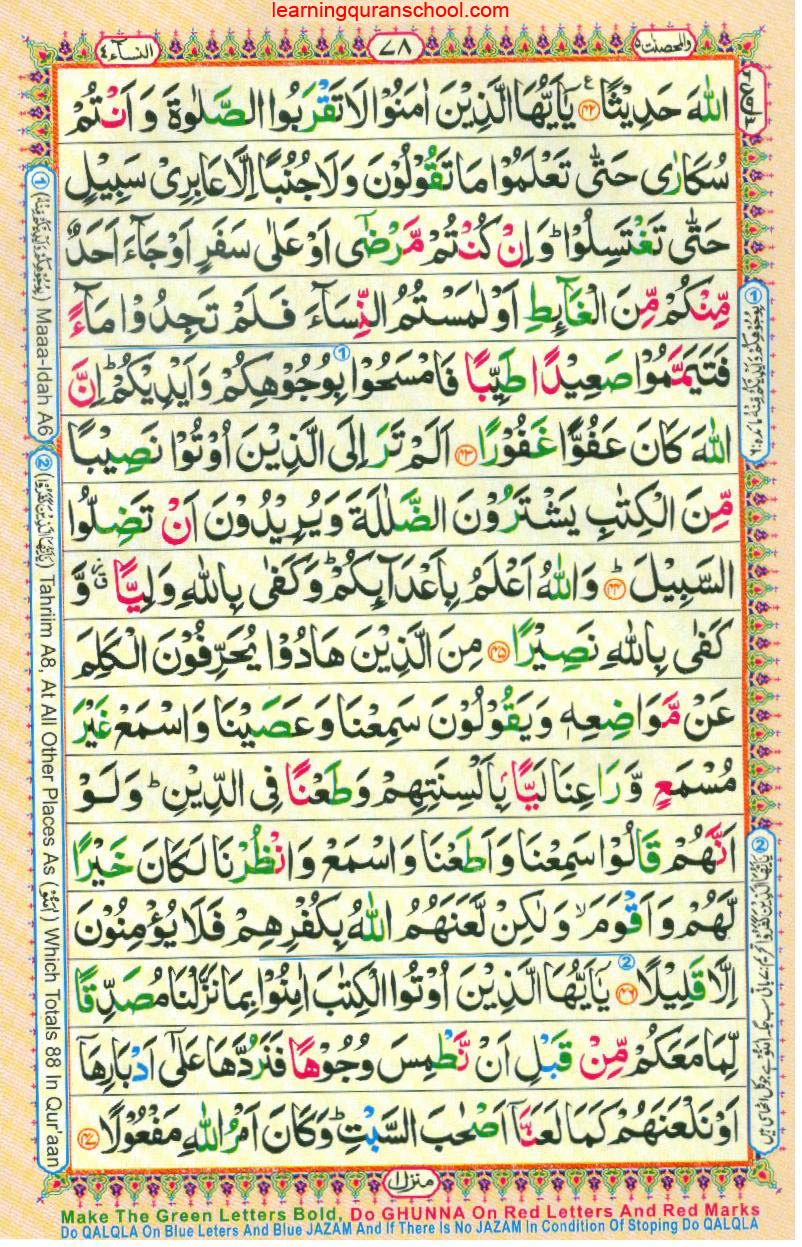 learningquranschool.com
النسآء ٤
٧٨
والمحصنت ٥
اللّٰهَ حَدِیْثًا ﴿٤٢﴾ ع یٰۤاَیُّهَا الَّذِیْنَ اٰمَنُوْا لَا تَقْرَبُوا الصَّلٰوةَ وَ اَنْتُمْ
سُكَارٰی حَتّٰی تَعْلَمُوْا مَا تَقُوْلُوْنَ وَ لَا جُنُبًا اِلَّا عَابِرِیْ سَبِیْلٍ
حَتّٰی تَغْتَسِلُوْا ؕ وَ اِنْ كُنْتُمْ مَّرْضٰۤی اَوْ عَلٰی سَفَرٍ اَوْ جَآءَ اَحَدٌ
مِّنْكُمْ مِّنَ الْغَآىِٕطِ اَوْ لٰمَسْتُمُ النِّسَآءَ فَلَمْ تَجِدُوْا مَآءً
فَتَیَمَّمُوْا صَعِیْدًا طَیِّبًا فَامْسَحُوْا بِوُجُوْهِكُمْ وَ اَیْدِیْكُمْ ؕ اِنَّ
اللّٰهَ كَانَ عَفُوًّا غَفُوْرًا ﴿٤٣﴾ اَلَمْ تَرَ اِلَی الَّذِیْنَ اُوْتُوْا نَصِیْبًا
مِّنَ الْكِتٰبِ یَشْتَرُوْنَ الضَّلٰلَةَ وَ یُرِیْدُوْنَ اَنْ تَضِلُّوا
السَّبِیْلَ ؕ ﴿٤٤﴾ وَ اللّٰهُ اَعْلَمُ بِاَعْدَآىِٕكُمْ ؕ وَ كَفٰی بِاللّٰهِ وَلِیًّا وَّ
كَفٰی بِاللّٰهِ نَصِیْرًا ﴿٤٥﴾ مِنَ الَّذِیْنَ هَادُوْا یُحَرِّفُوْنَ الْكَلِمَ
عَنْ مَّوَاضِعِهٖ وَ یَقُوْلُوْنَ سَمِعْنَا وَ عَصَیْنَا وَ اسْمَعْ غَیْرَ
مُسْمَعٍ وَّ رَاعِنَا لَیًّۢا بِاَلْسِنَتِهِمْ وَ طَعْنًا فِی الدِّیْنِ ؕ وَ لَوْ
اَنَّهُمْ قَالُوْا سَمِعْنَا وَ اَطَعْنَا وَ اسْمَعْ وَ انْظُرْنَا لَكَانَ خَیْرًا
لَّهُمْ وَ اَقْوَمَ ۙ وَ لٰكِنْ لَّعَنَهُمُ اللّٰهُ بِكُفْرِهِمْ فَلَا یُؤْمِنُوْنَ
اِلَّا قَلِیْلًا ﴿٤٦﴾ یٰۤاَیُّهَا الَّذِیْنَ اُوْتُوا الْكِتٰبَ اٰمِنُوْا بِمَا نَزَّلْنَا مُصَدِّقًا
لِّمَا مَعَكُمْ مِّنْ قَبْلِ اَنْ نَّطْمِسَ وُجُوْهًا فَنَرُدَّهَا عَلٰۤی اَدْبَارِهَاۤ
اَوْ نَلْعَنَهُمْ كَمَا لَعَنَّاۤ اَصْحٰبَ السَّبْتِ ؕ وَ كَانَ اَمْرُ اللّٰهِ مَفْعُوْلًا ﴿٤٧﴾
① Maaa-Idah A6
② (یٰۤاَیُّهَا الَّذِیْنَ كَفَرُوْا) Tahriim A8, At All Other Places As (اٰمَنُوْا) Which Totals 88 In Qur'aan
منزل ١
Make The Green Letters Bold, Do GHUNNA On Red Letters And Red Marks
Do QALQLA On Blue Leters And Blue JAZAM And If There Is No JAZAM In Condition Of Stoping Do QALQLA